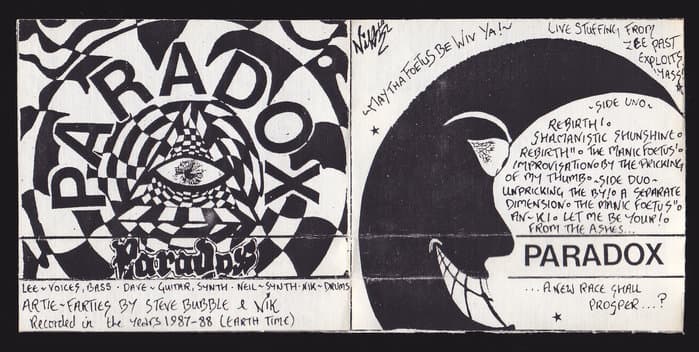 PARADOX
Paradox
LEE~VOICES, BASS · DAVE~GUITAR, SYNTH · NEIL~SYNTH · NIK~DRUMS
ARTIE~FARTIES BY STEVE BUBBLE & NIK
Recorded in the years 1987-88 (EARTH TIME)
~MAY THA FOETUS BE WIV YA!~
LIVE STUFFING FROM
ZEE PAST
EXPLOITS
'MASS'
~SIDE UNO~
REBIRTH!
SHAMANISTIC SHUNSHINE
REBIRTH" THE MANIC FOETUS!
IMPROVISATION BY THE PRICKING
OF MY THUMB ~SIDE DUO~
UNPRICKING THE BY! A SEPARATE
DIMENSION THE MANIC FOETUS"
AN~KI LET ME BE YOUR!
FROM THE ASHES...
PARADOX
...A NEW RACE SHALL
PROSPER...?